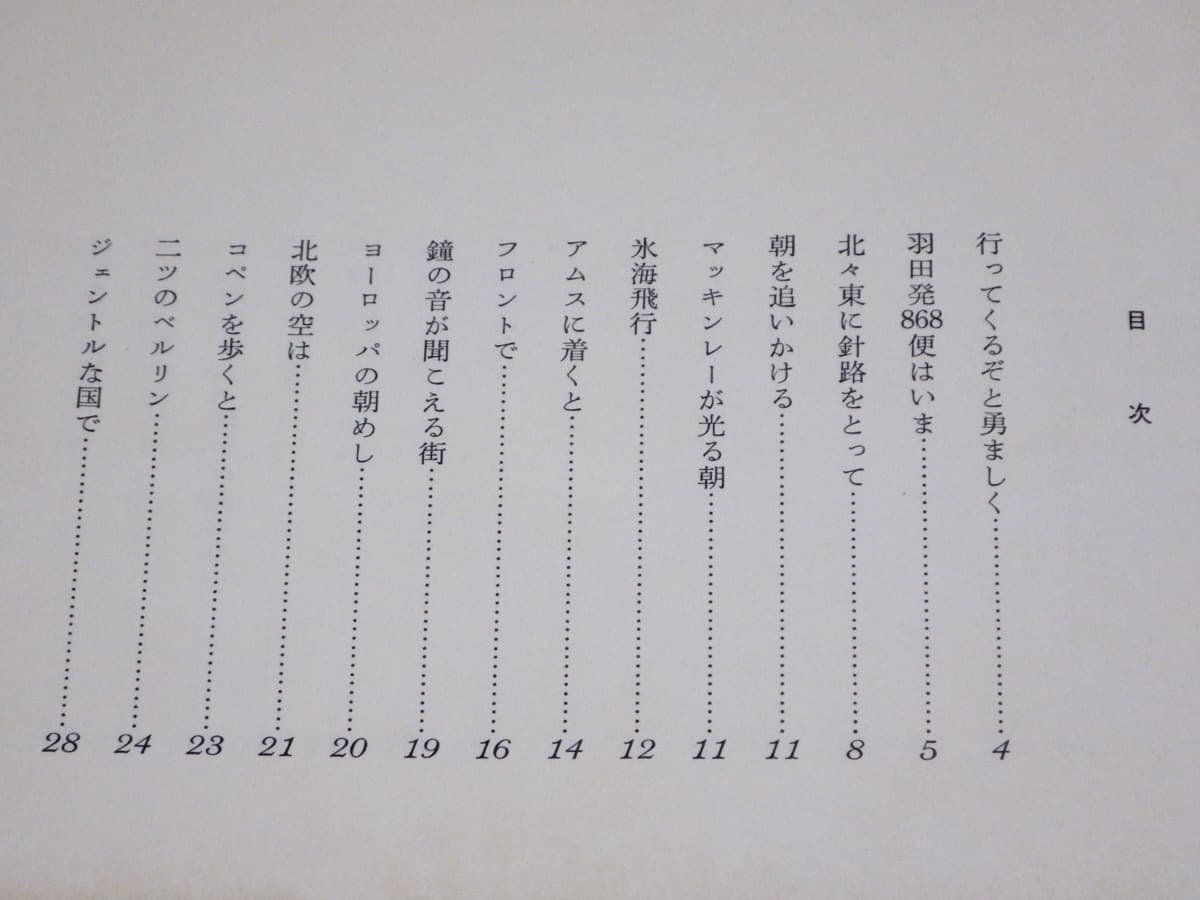 目次
行ってくるぞと勇ましく……………………4
羽田発868便はいま……………………5
北々東に針路をとって……………………8
朝を追いかける……………………11
マッキンレーが光る朝……………………11
氷海飛行……………………12
アムスに着くと……………………14
フロントで……………………16
鐘の音が聞こえる街……………………19
ヨーロッパの朝めし……………………20
北欧の空は……………………21
コペンを歩くと……………………23
二ツのベルリン……………………24
ジェントルな国で……………………28